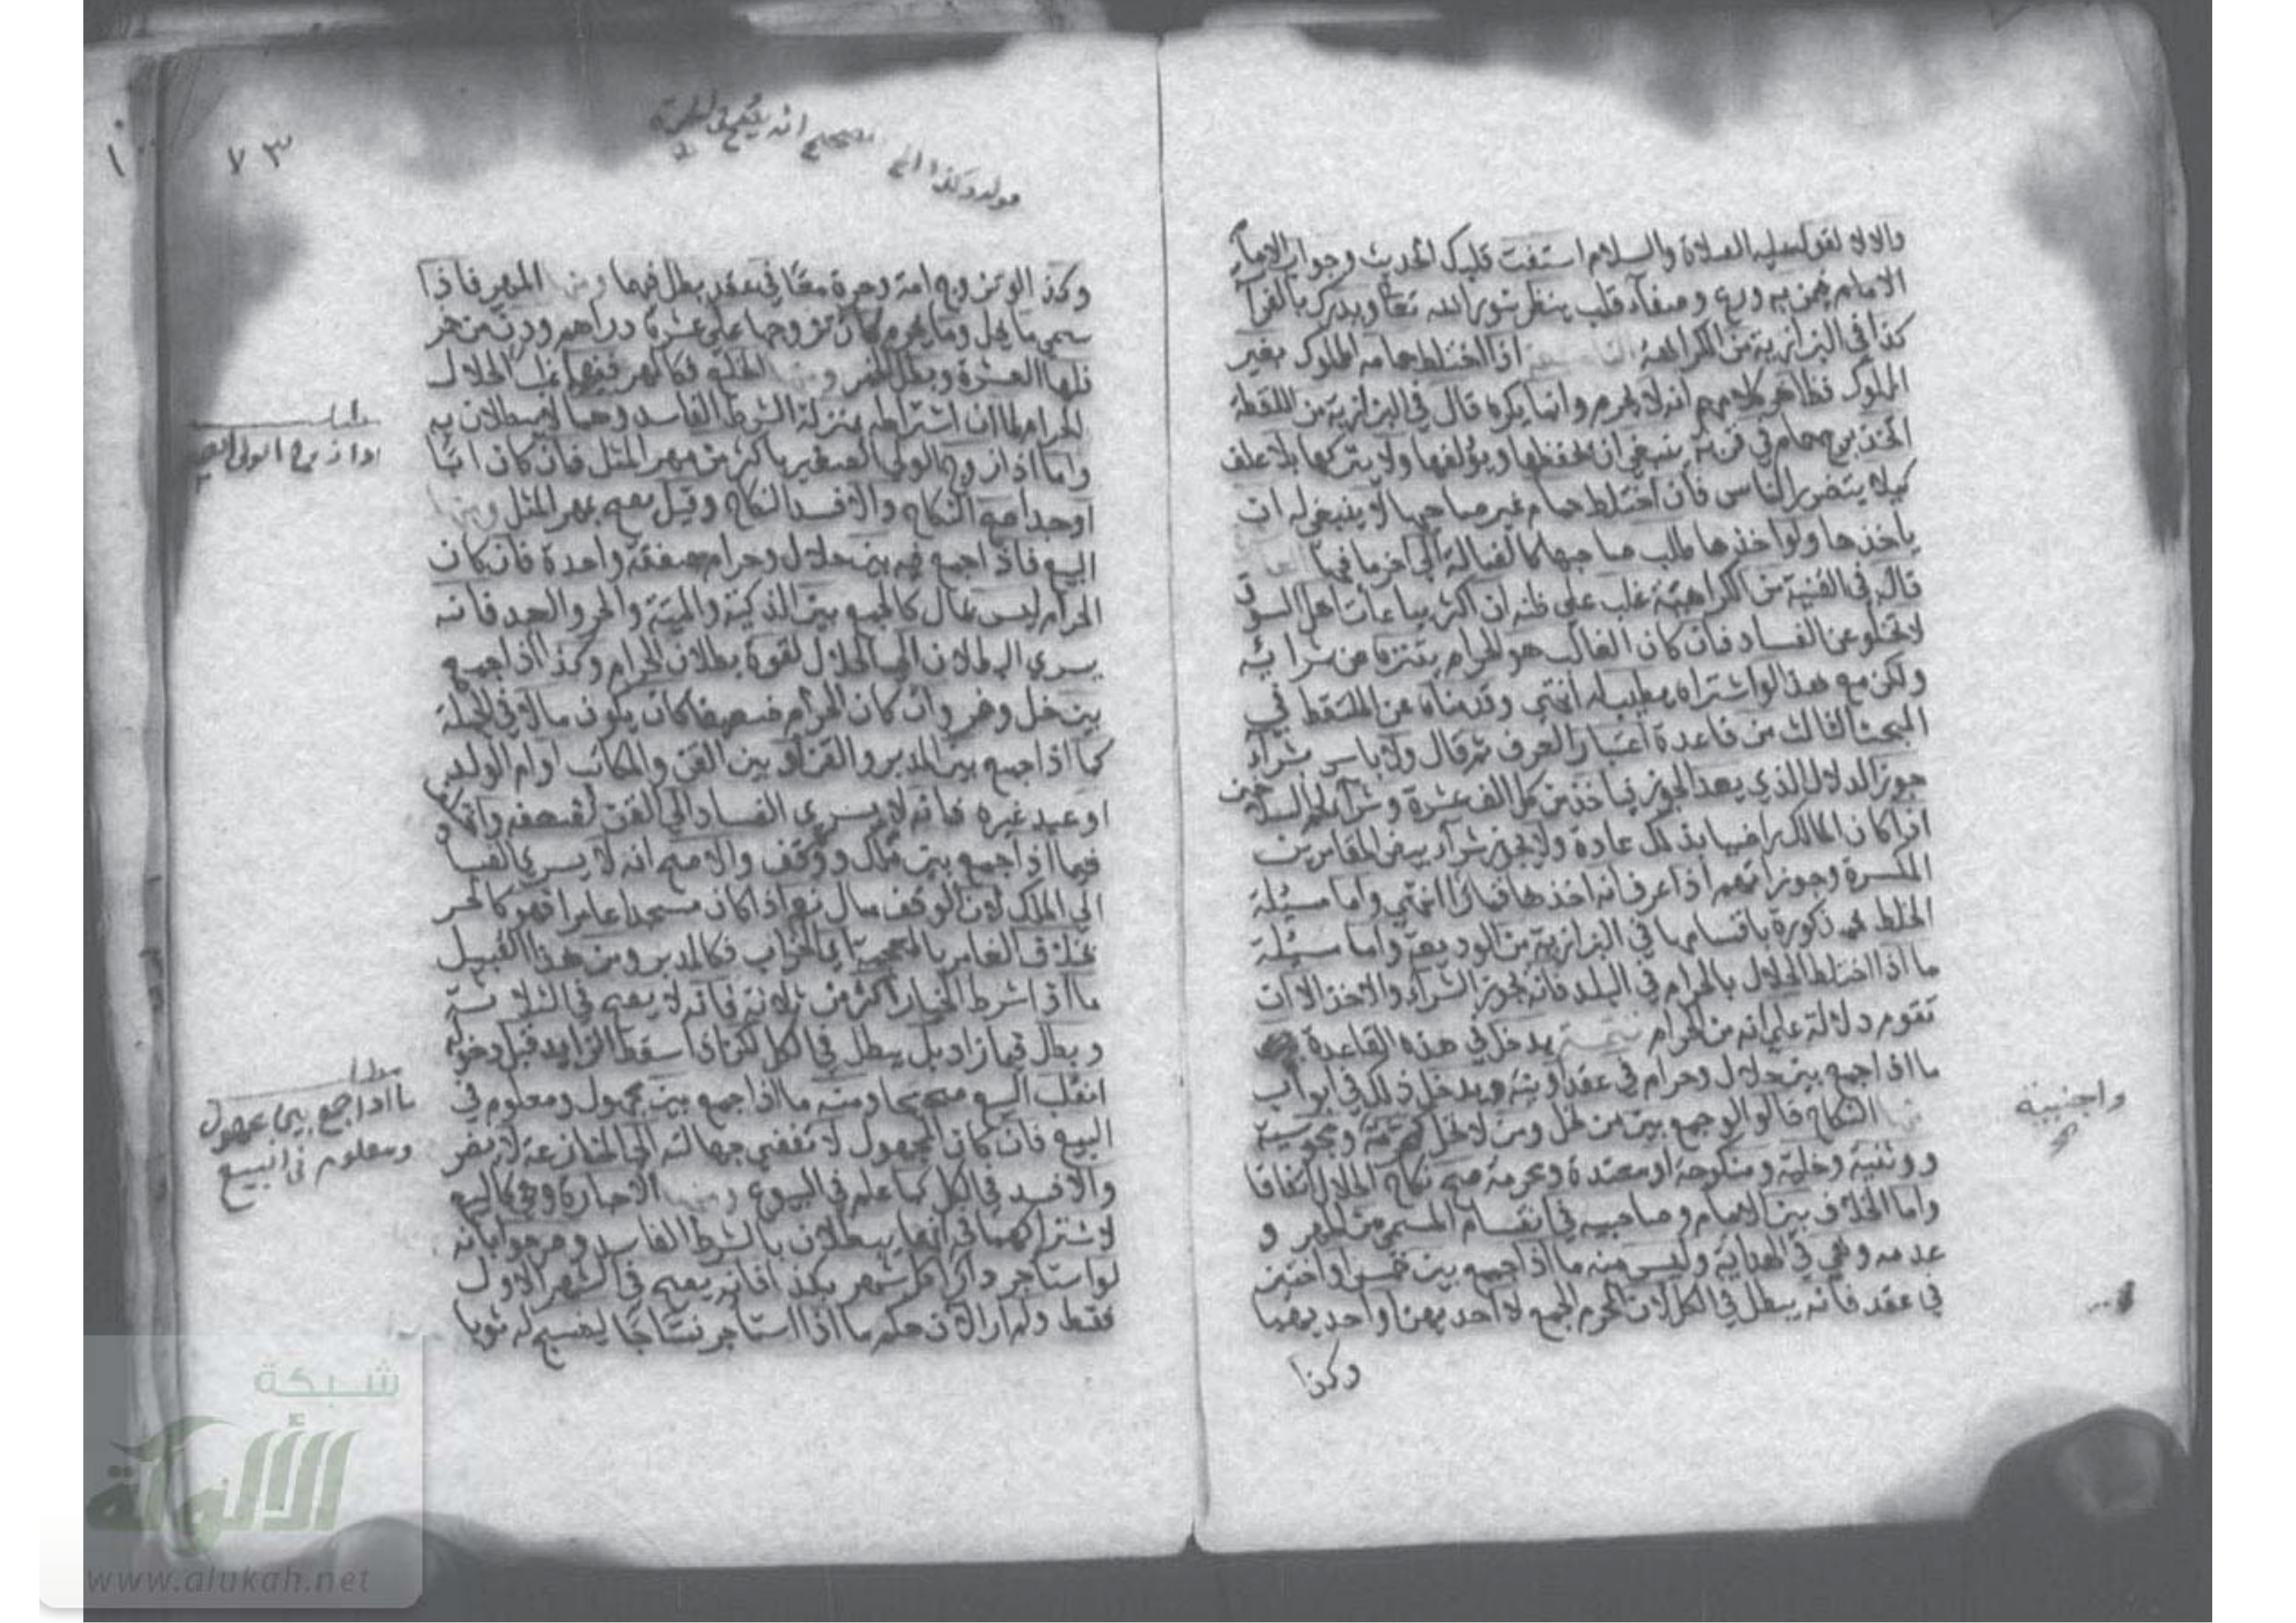 والا لا لقوله عليه الصلاة والسلام استفت قلبك الحديث وجواب الامام
الامام فيمن به ورع وصفآء قلب ينظر بنور الله تعا ويدرك بالفرا
كذا في البزازية من الكراهة اذا اختلط حمامه المملوك بغير
المملوك فظاهر كلامهم انه لا يحرم وانما يكره قال في البزازية من اللقطة
اتخذ برج حمام في قرية ينبغي ان يحفظها ويؤلفها ولا يتركها بلا علف
كيلا يتضرر الناس فان اختلط حمام غير صاحبها لا ينبغي له ان
ياخذها ولو اخذها طلب صاحبها كالضالة الي اخر ما فيها
قال في القنية من الكراهية غلب علي ظنه ان اكثر بياعات اهل السوق
لا تخلو عن الفساد فان كان الغالب هو الحرام يتنزه عن شرائه
ولكن مع هذا لو اشتراه يطيب له انتهي وقدمناه عن الملتقط في
المبحث الثالث من قاعدة اعتبار العرف ثم قال ولا باس بشرآء
جوز الدلال الذي يعد الجوز فياخذ من كل الف عشرة وشرآء لحم السلاخين
اذا كان المالك راضيا بذلك عادة ولا يجوز شرآء بيض المقامرين
المكسرة وجوزاتهم اذا عرف انه اخذها قمارا انتهي واما مسئلة
الخلط فمذكورة باقسامها في البزازية من الوديعة واما مسئلة
ما اذا اختلط الحلال بالحرام في البلد فانه يجوز الشرآء والاخذ الا ان
تقوم دلالة علي انه من الحرام تتمة يدخل في هذه القاعدة
ما اذا جمع بين حلال وحرام في عقد او نية ويدخل ذلك في ابواب
منها النكاح قالوا لو جمع بين من تحل ومن لا تحل كمحرمة ومجوسية
ووثنية وخلية ومنكوحة او معتدة ومحرمة صح نكاح الحلال اتفاقا
واما الخلاف بين الامام وصاحبيه في انقسام المسمي من المهر و
عدمه وهي في الهداية وليس منه ما اذا جمع بين خمس او اختين
في عقد فانه يبطل في الكل لان المحرم الجمع لا احديهن او احديهما
وكذا
واجنبية
٧٣
وكذا لو تزوج امة وحرة معًا في عقد بطل فيهما ومنها المهر فاذا
سمي ما يحل وما يحرم كان تزوجها علي عشرة دراهم ودن من خمر
فلها العشرة وبطل الخمر ومنها الخلع فكالمهر ففيهما غلب الحلال
الحرام لما ان اشتراطه بمنزلة الشرط الفاسد وهما لا يبطلان به
واما اذا زوج الولي الصغير باكثر من مهر المثل فان كان ابًا
او جدا صح النكاح والا فسد النكاح وقيل يصح بمهر المثل ومنها
البيع فاذا جمع فيه بين حلال وحرام صفقة واحدة فان كان
الحرام ليس بمال كالجمع بين الذكية والميتة والحر والعبد فانه
يسري البطلان الي الحلال لقوة بطلان الحرام وكذا اذا جمع
بين خل وخمر وان كان الحرام ضعيفا كان يكون مالا في الجملة
كما اذا جمع بين المدبر والقن او بين القن والمكاتب او ام الولد
او عبد غيره فانه لا يسري الفساد الي القن لضعفه واختلف
فيما اذا جمع بين ملك ووقف والاصح انه لا يسري الفساد
الي الملك لان الوقف مال نعم اذا كان مسجدا عامرا فهو كالحر
بخلاف الغامر بالمعجمة اي الخراب فكالمدبر ومن هذا القبيل
ما اذا شرط الخيار اكثر من ثلاثة فانه لا يصح في الثلاثة
ويطل فيما زاد بل يبطل في الكل لكن اذا اسقط الزايد قبل دخوله
انقلب البيع صحيحا ومنه ما اذا جمع بين مجهول ومعلوم في
البيع فان كان المجهول لا تفضي جهالته الي المنازعة لا يضر
والا فسد في الكل كما علم في البيوع ومنها الاجارة وهي كالبيع
لاشتراكهما في انهما يبطلان بالشرط الفاسد وصرحوا بانه
لو استاجر دارا كل شهر بكذا فانه يصح في الشهر الاول
فقط ولم ار الان حكم ما اذا استاجر نساجًا لينسج له ثوبا
مطلب
اذا زوج الولي الصغير
مطلب
ما اذا جمع بين مجهول
ومعلوم في البيع
شبكة
الألوكة
www.alukah.net